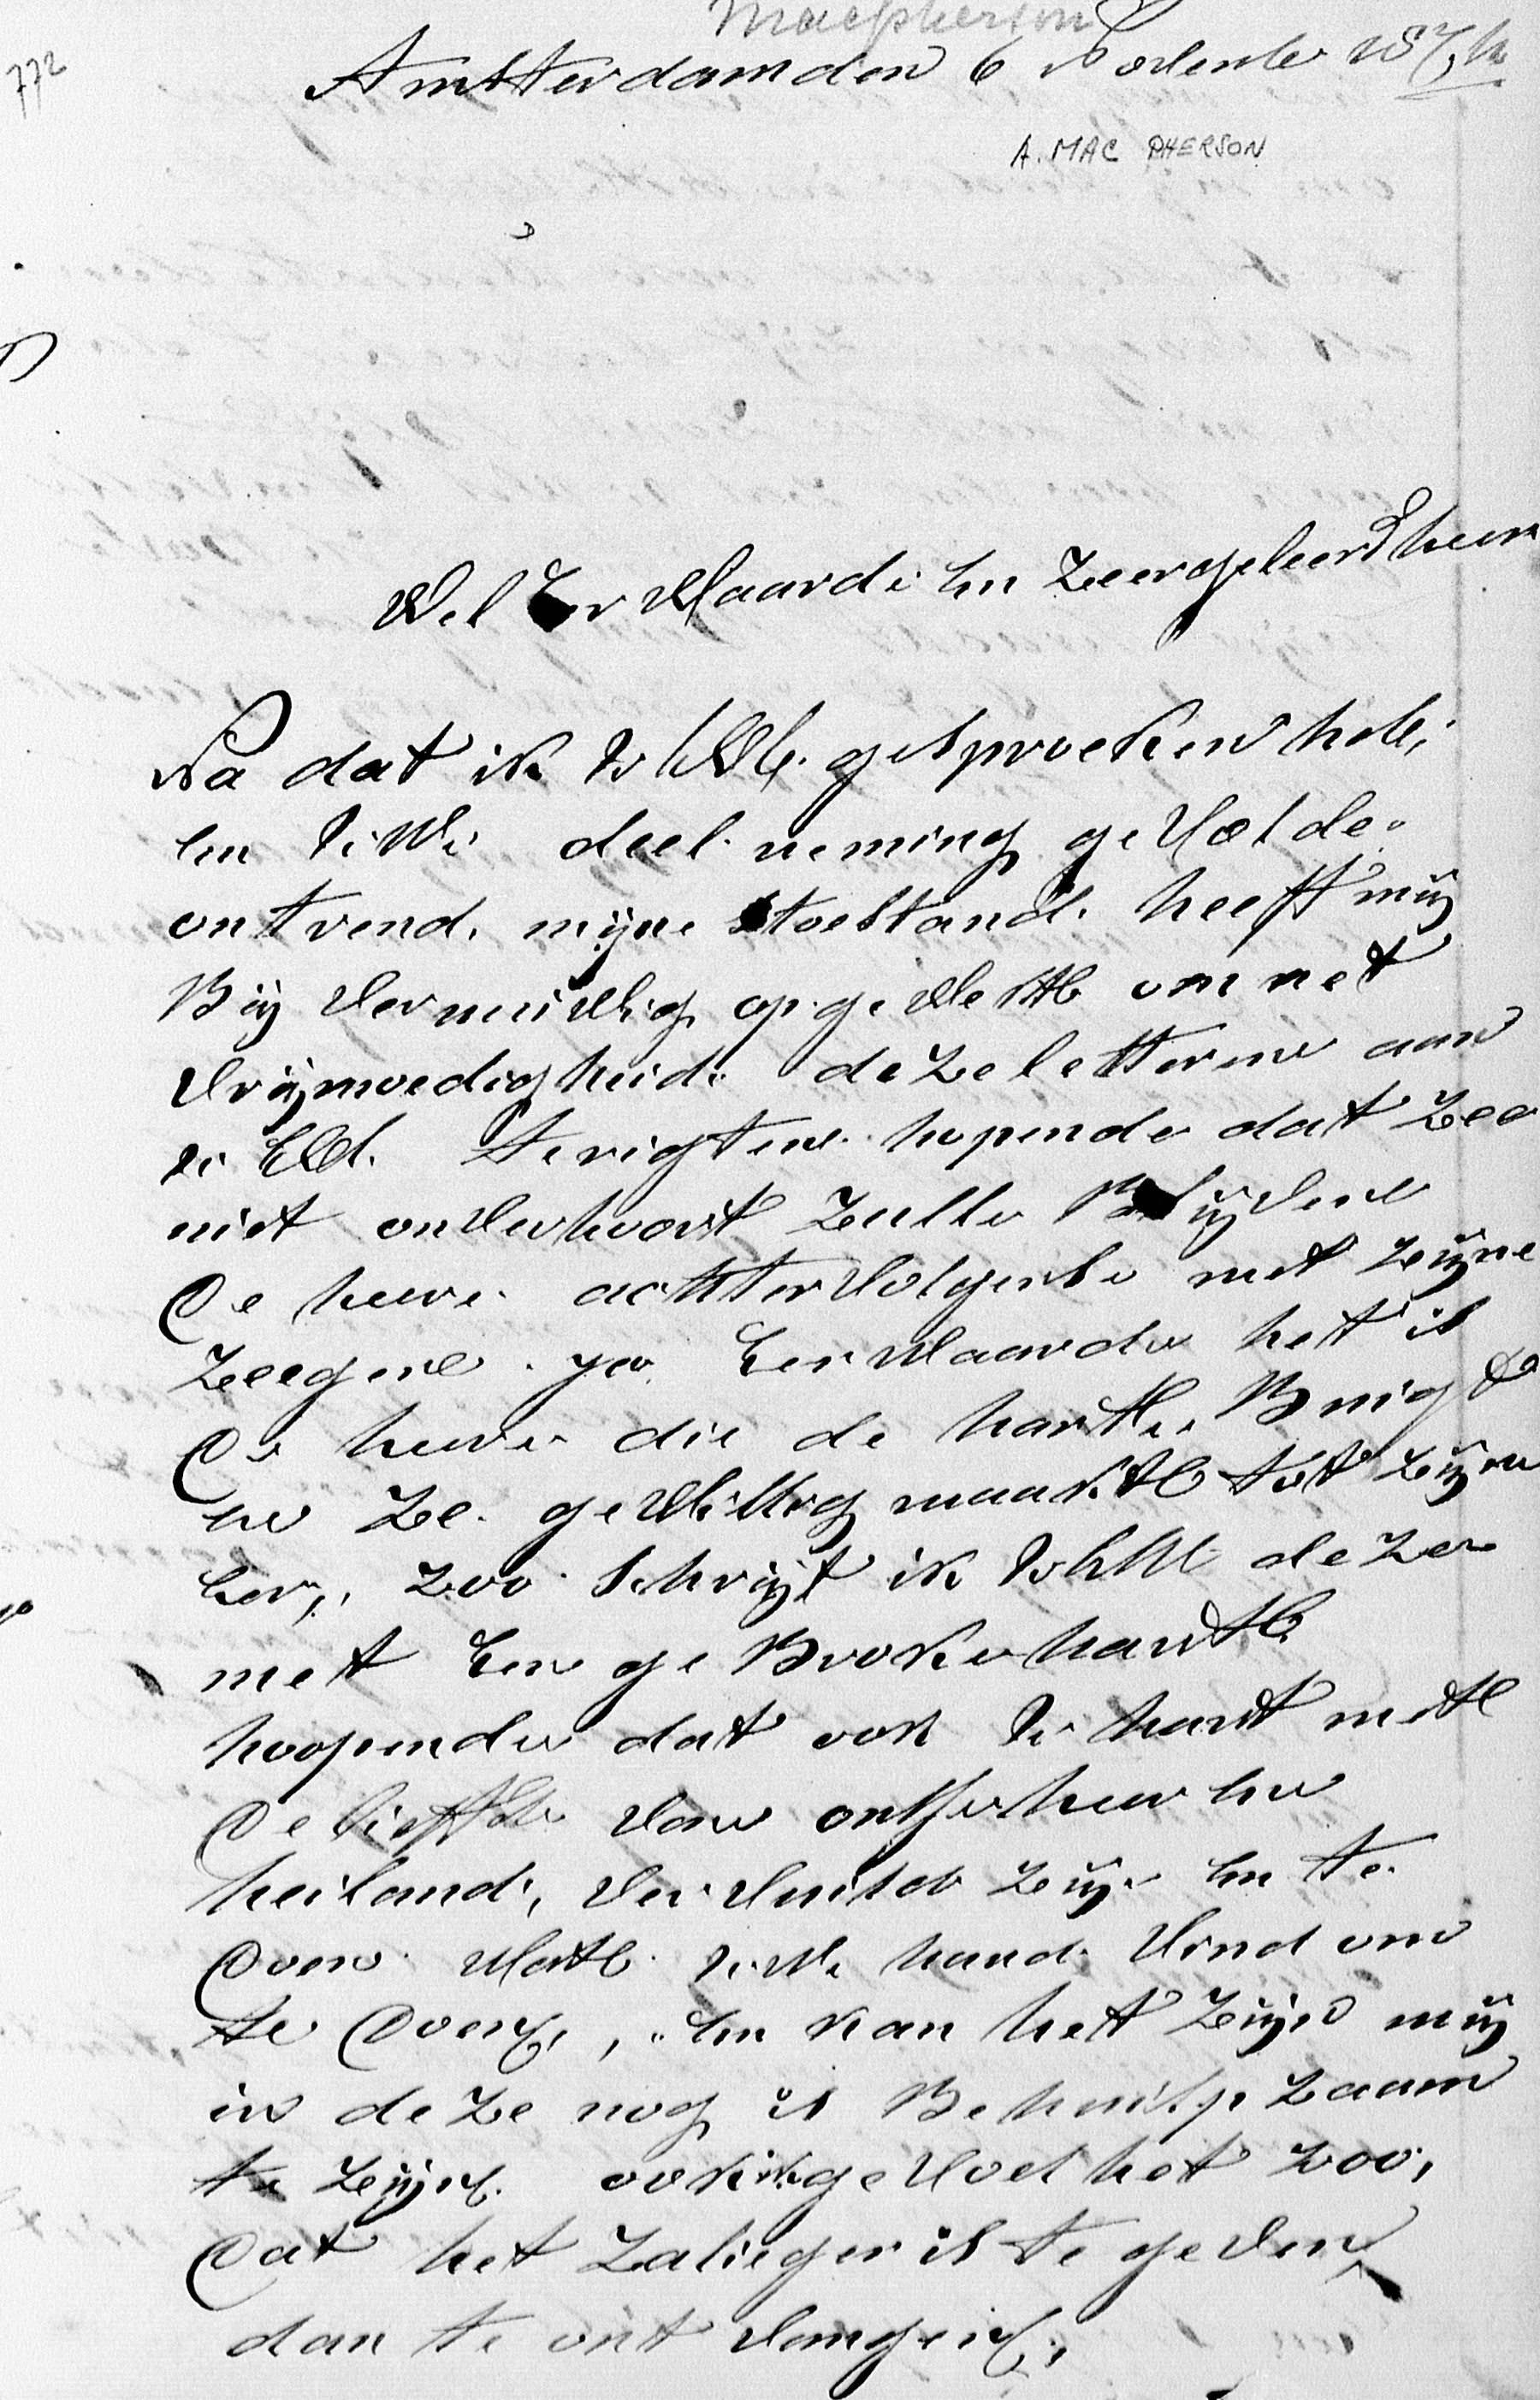 Macpherson
772
Amsterdam den 6
A. MAC PHERSON
Wel Eer Waarde En Zeergeleerd heer
Na dat ik gesprooken heb,
En deel neming ge Voelde
ontrend, mijne toestand. heeft mij
Bij Vernuiwlig op ge Wekt om met
Vrijmoedigheid. deze letteren aan
te rigten. hopende dat Zee
niet onVerhoort Zulle Blijven
De heere achterVolgende met Zijne
Zeegene. ja. EerWaarde het is
De heere die de harte, Buigt
en Ze. geWillig maakt tot Zijne
Eer,, Zoo schrijft ik dezen
met Een ge Broken hardt
hoopende dat ook U hart mett
De liefde Van onsse heer En
heiland, VerVuld Zij En te
Doen Watt hand Vind om
te Doen, , En kan het Zijn mij
in deze nog is Behuilpzaam
te Zijn. ook ik ge Voel het Zoo,
Dat het Zalieger is te geVen
dan te ont Vangen,